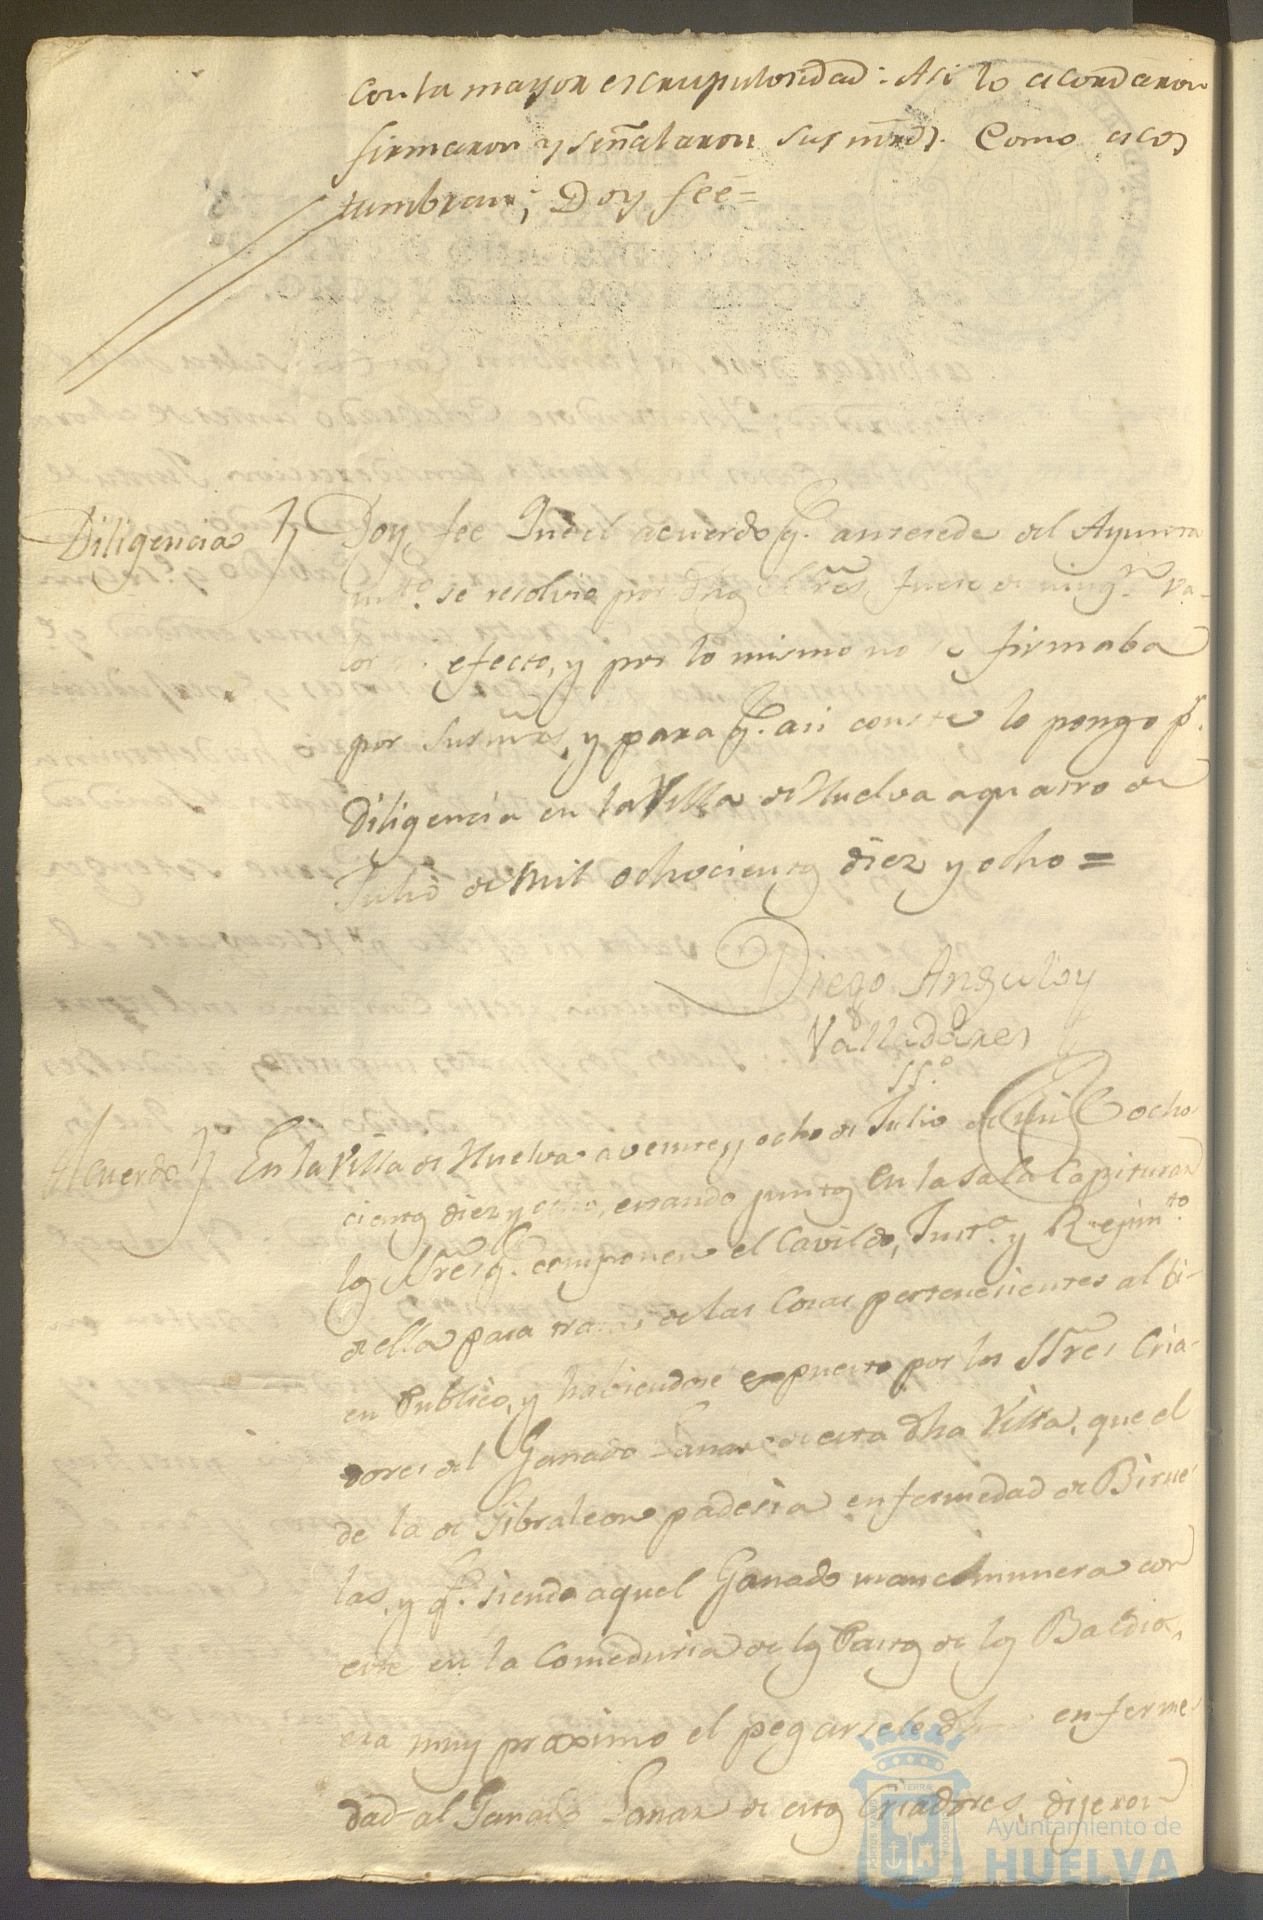 con la mayor escrupulosidad: Asi lo acordaron
firmaron y señalaron sus mrds. Como acos
tumbran; Doy feé=
Diligencia Doy fee Que el acuerdo q. antesede del Ayunta
mto. se resolvió por dhos Sres. fuese de ningn. va-
lor ni efecto, y por lo mismo no se firmaba
por sus mrs, y para q. asi conste lo pongo pr.
Diligencia en la Villa de Huelva a quatro de
Julio de Mil ochocientos diez y ocho =
Diego Angulo y
Valladares
SSo.
Acuerdo En la Villa de Huelva a veinte y ocho de Julio de mil ocho-
cientos diez y ocho, estando juntos en la Sala Capitular
los Sres q. componen el Cavildo, Justa. y Rejimto.
de ella para tratar de las Cosas pertenesientes al bi-
en Publico, y habiendose expuesto por los SSres Cria-
dores del Ganado Lanar de esta dha Villa, que el
de la de Gibraleon padesia enfermedad de Birue
las, y q. siendo aquel Ganado mancomunera con
este en la Comeduria de los Pastos de los Baldios,
era muy proximo el pegarsele dha enferme
dad al Ganado Lanar de estos Criadores, dijeron
Ayuntamiento de
HUELVA